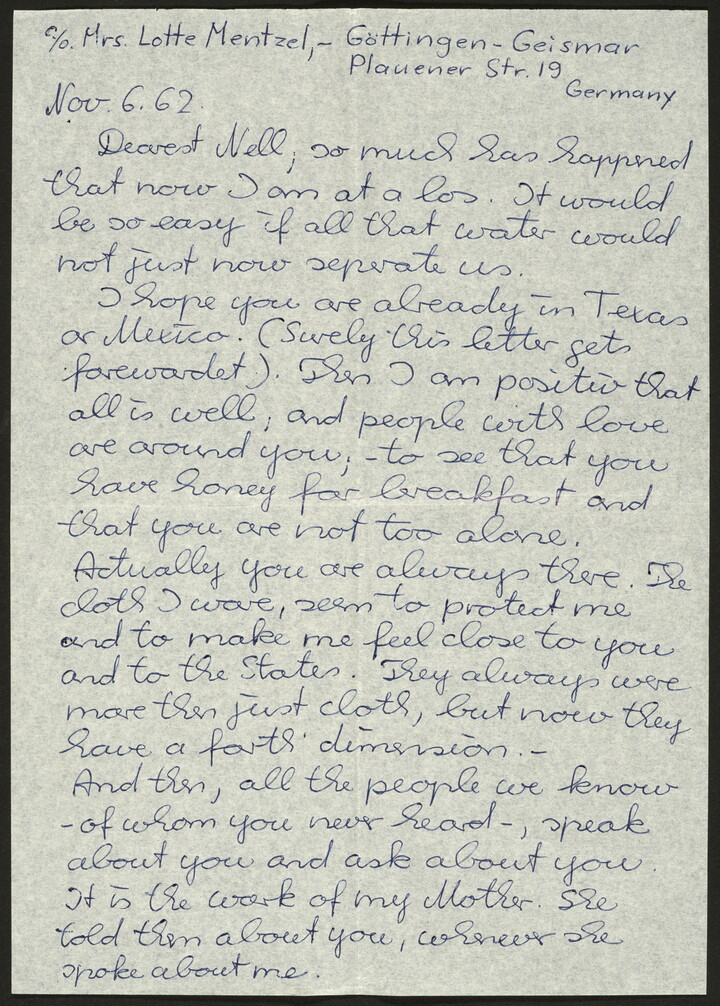 c/o. Mrs. Lotte Mentzel,- Göttingen-Geismar
Plauener Str. 19
Germany
Nov. 6. 62.
Dearest Nell, so much has happened
that now I am at a los. It would
be so easy if all that water would
not just now seperate us.
I hope you are already in Texas
or Mexico. (Surely this letter gets
forewardet). Then I am positiv that
all is well, and people with love
are around you; -to see that you
have honey for breakfast and
that you are not too alone.
Actually you are always there. The
cloth I wore, seem to protect me
and to make me feel close to you
and to the States. They always were
more then just cloth, but now they
have a forth dimension.-
And then, all the people we know
-of whom you never heard-, speak
about you and ask about you.
It is the work of my Mother. She
told them about you, whenever she
spoke about me.